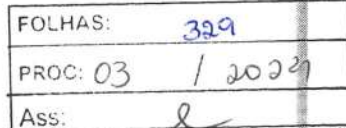 FOLHAS: 329
PROC: 03 / 2024
Ass: